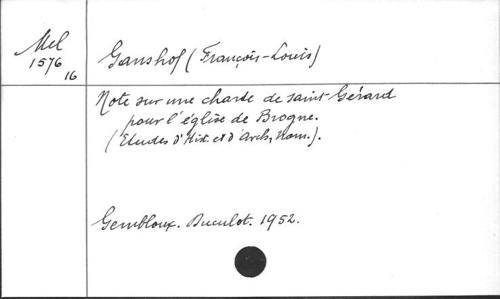 Mel
1576
16
Ganshof (François-Louis)
Note sur une charte de saint Gérard
pour l'église de Brogne.
(Etudes d'Hist. et d'Arch. Nam.).
Gembloux. Duculot. 1952.